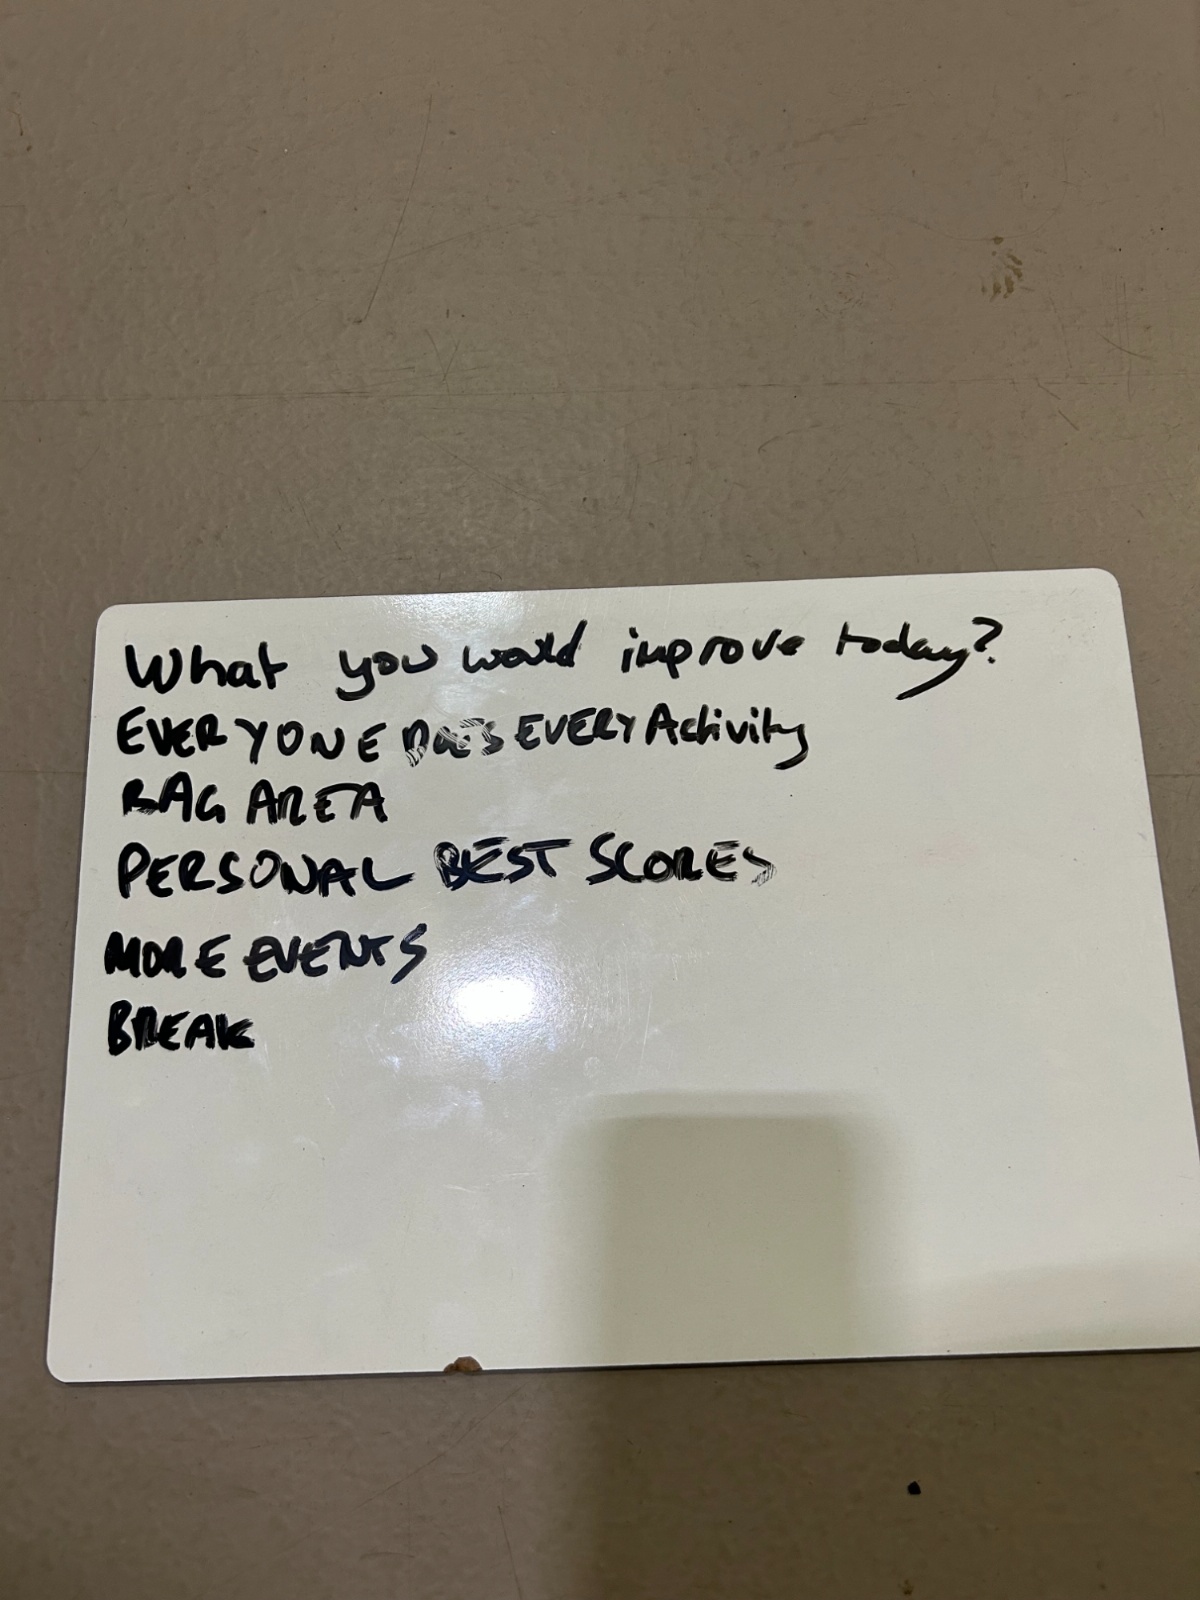 What you would improve today?
EVERYONE DOES EVERY Activity
BAG AREA
PERSONAL BEST SCORES
MORE EVENTS
BREAK